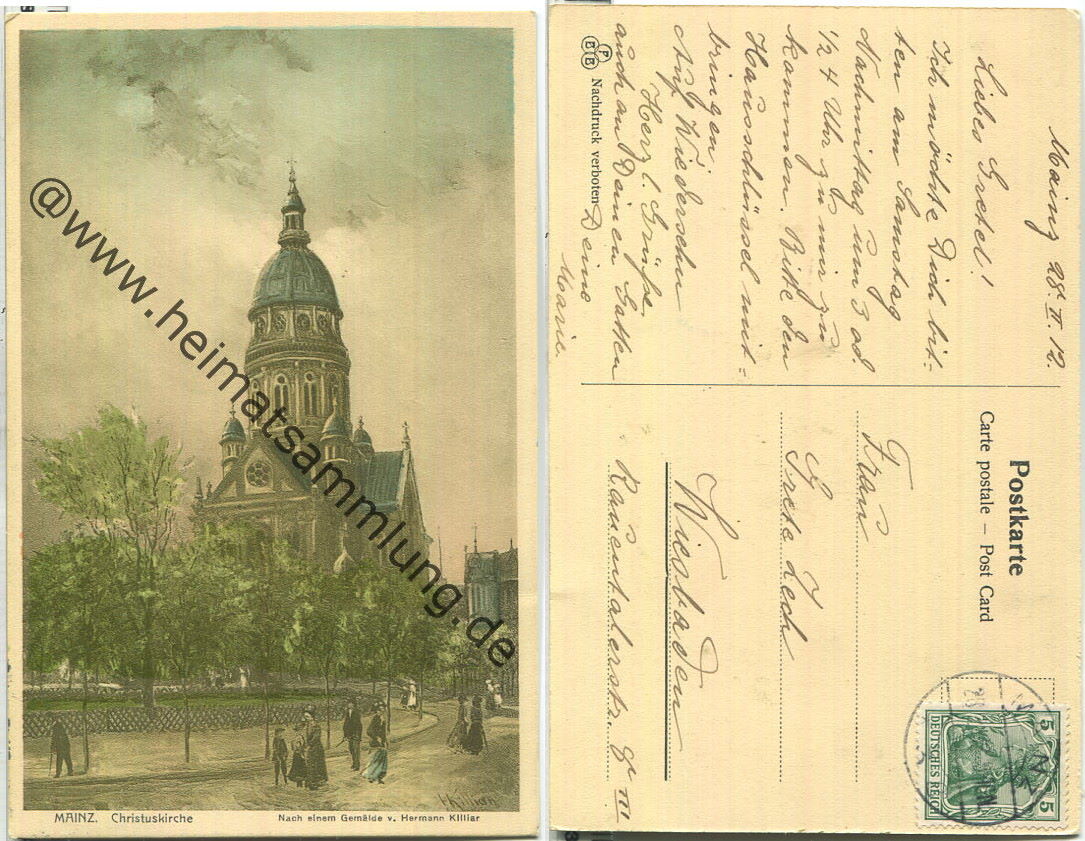 MAINZ. Christuskirche
Nach einem Gemälde v. Hermann Killiar
HKilliar
@www.heimatsammlung.de
Mainz 28. II. 12.
Liebes Gretel!
Ich möchte Dich bit-
ten am Samstag
Nachmittag um 3 od.
1/2 4 Uhr zu mir zu
kommen. Bitte den
Hausschlüssel mit-
bringen
Auf Wiedersehn
Herzl. Grüße
auch an Deinen Gatten
Deine
Marie.
Nachdruck verboten
Postkarte
Carte postale – Post Card
Frau
Grete Zech
Wiesbaden
Rauentalerstr. 8 III
DEUTSCHES REICH
5
5